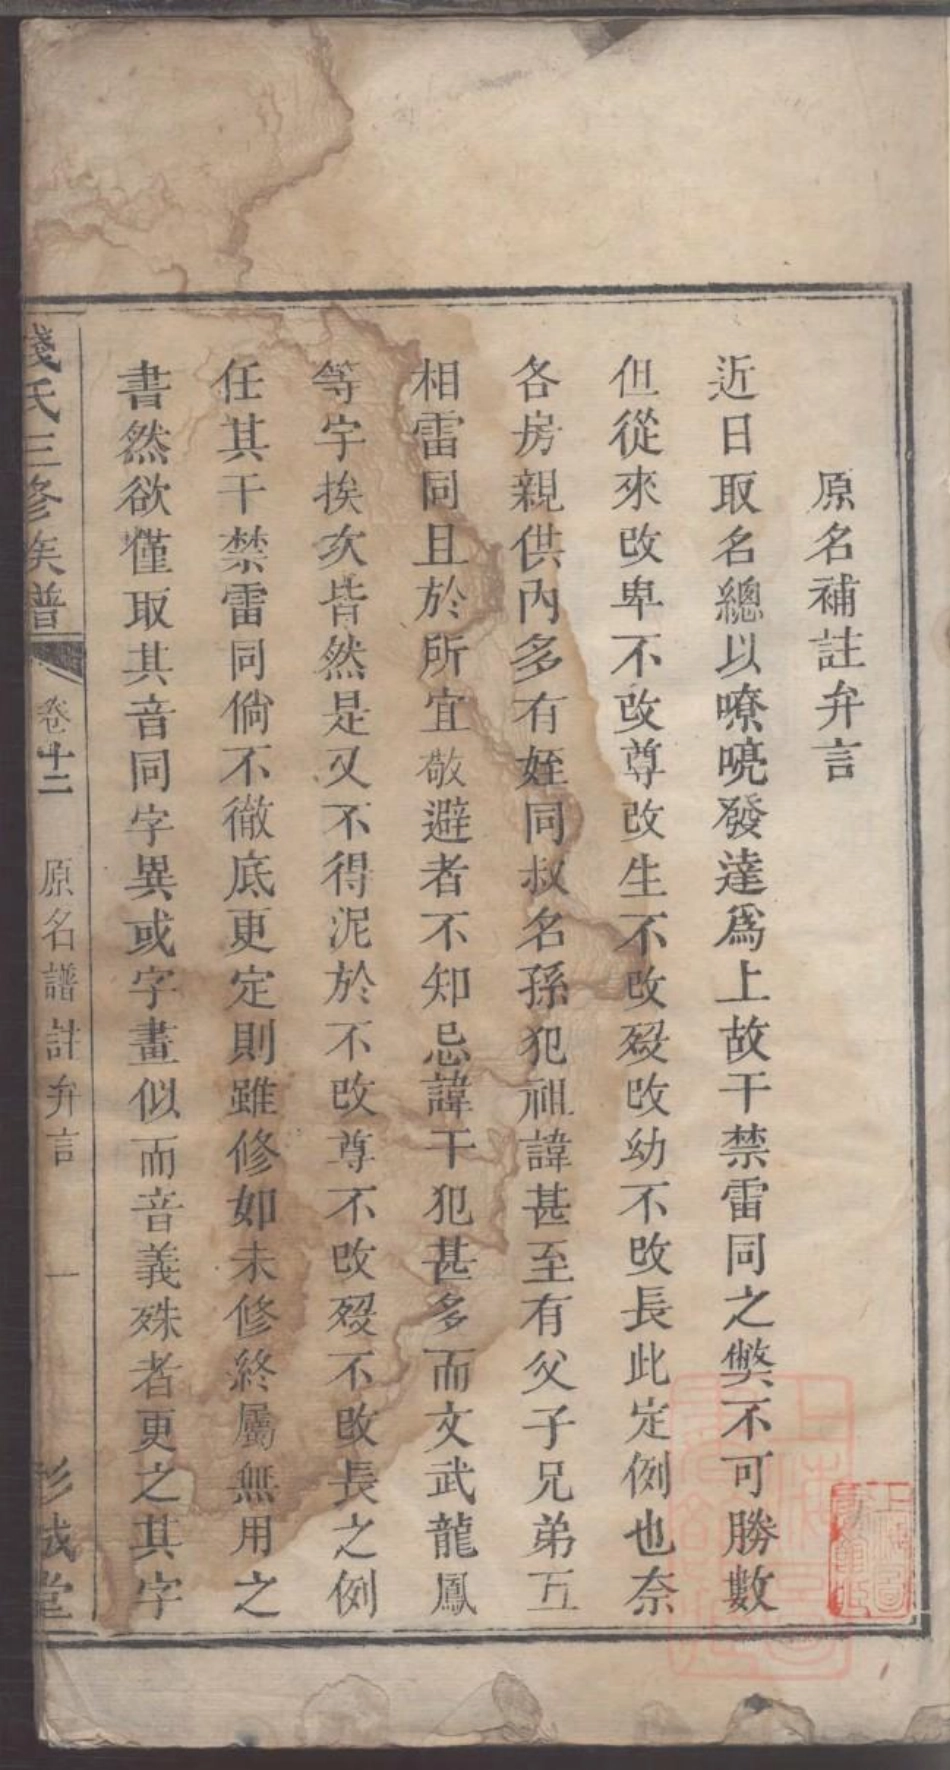 原名補註弁言
近日取名總以嘹喨發達爲上故干禁雷同之獘不可勝數
但從來改卑不改尊改生不改歿改幼不改長此定例也奈
各房親供內多有姪同叔名孫犯祖諱甚至有父子兄弟五
相雷同且於所宜敬避者不知忌諱干犯甚多而文武龍鳳
等字挨次皆然是又不得泥於不改尊不改歿不改長之例
任其干禁雷同倘不徹底更定則雖修如未修終屬無用之
書然欲僅取其音同字異或字畫似而音義殊者更之其字
錢氏三修族譜 卷十二 原名譜註弁言 一 彭城堂